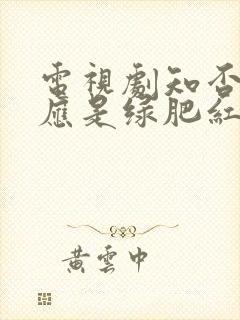 電視劇知否
應是绿肥紅
黃雲中